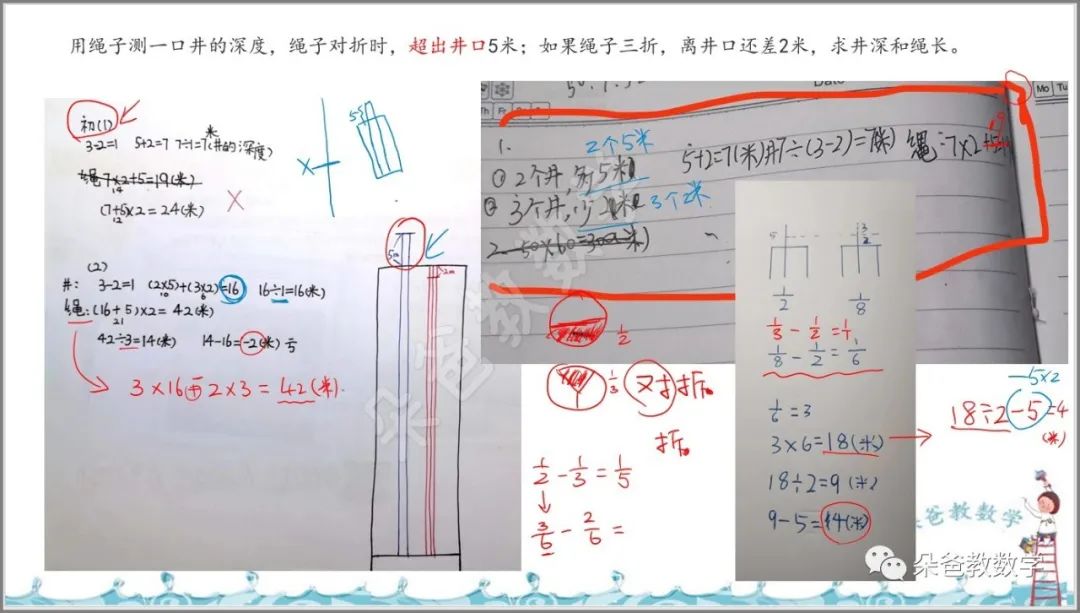 用绳子测一口井的深度，绳子对折时，超出井口5米；如果绳子三折，离井口还差2米，求井深和绳长。
初(1)
3-2=1 5+2=7 7÷1=7(井的深度)
米
绳7×2+5=19(米)
14
(7+5)×2=24(米)
12
(2)
井: 3-2=1 (2×5)+(3×2)=16 16÷1=16(米)
10 6
绳:(16+5)×2=42(米)
21
42÷3=14(米) 14-16=-2(米)亏
3×16-2×3=42(米).
5
5m
2m
Mo Tu
Th Fr
1.
2个5米
① 2个井,多5米
② 3个井,少2米 3个2米
5+2=7(米)井7÷(3-2)=7(米) 绳:7×2+5
19
1/2
1/3 又对折.
折.
1/2-1/3=1/5
3/6-2/6=
5 3/2
1/2 1/8
1/3-1/2=1/1
1/8-1/2=1/6
1/6=3
3×6=18(米)
18÷2=9(米)
9-5=4(米)
-5×2
18÷2-5=4
(米)
朵爸教数学
朵爸教数学
朵爸教数学